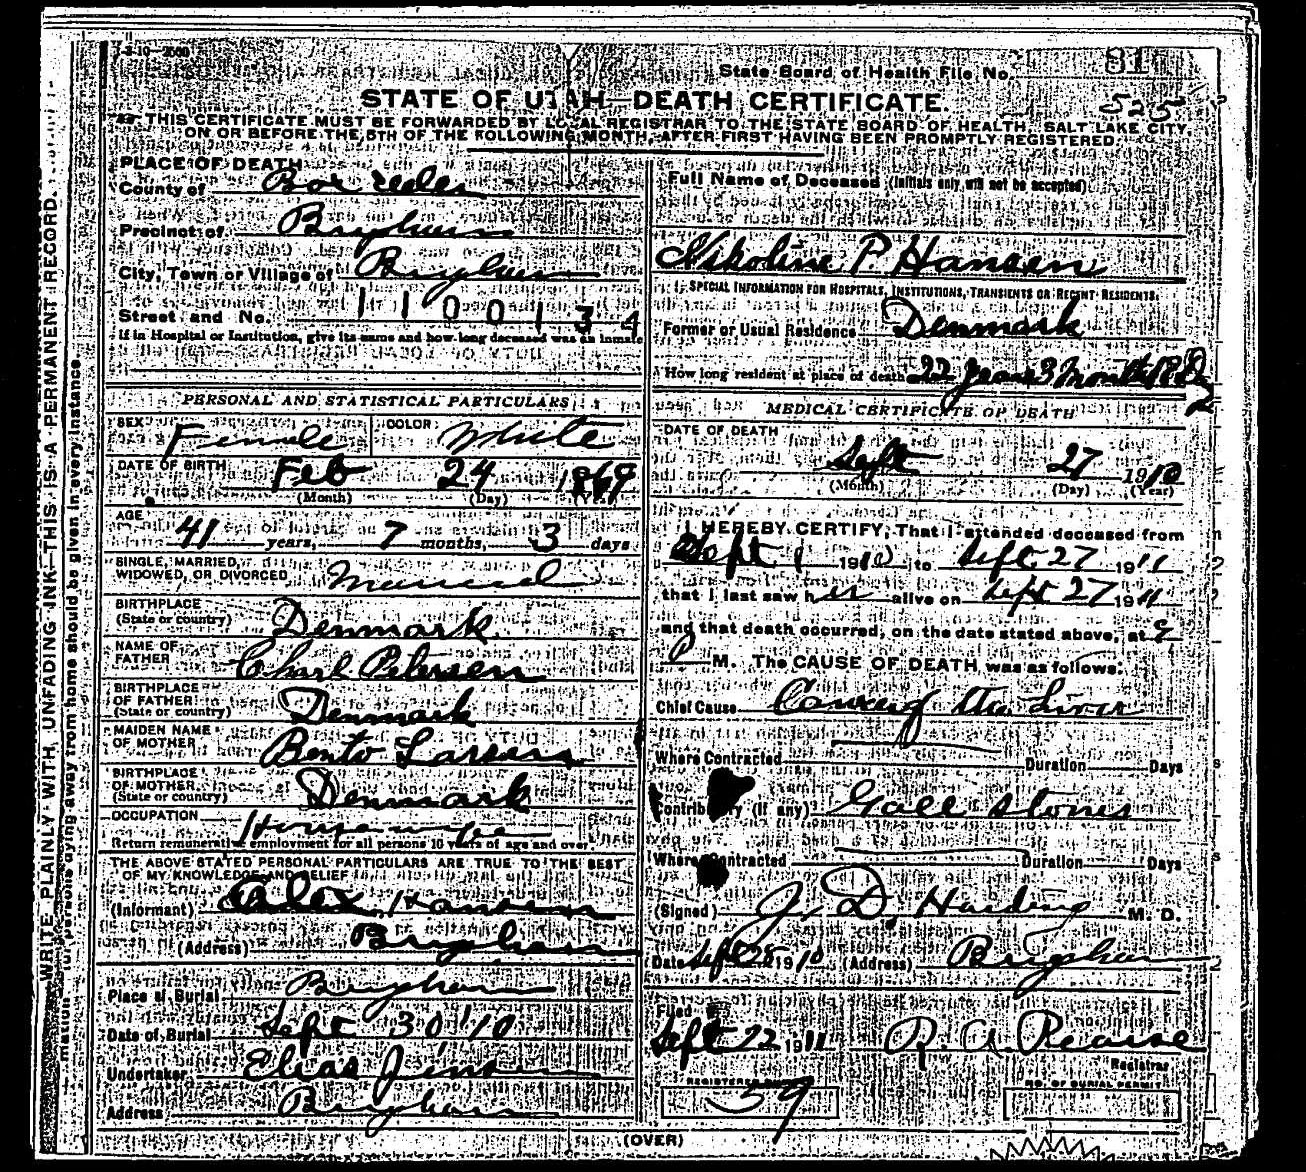 81
State Board of Health File No.
STATE OF UTAH—DEATH CERTIFICATE.
525
THIS CERTIFICATE MUST BE FORWARDED BY LOCAL REGISTRAR TO THE STATE BOARD OF HEALTH, SALT LAKE CITY,
ON OR BEFORE THE 5TH OF THE FOLLOWING MONTH, AFTER FIRST HAVING BEEN PROMPTLY REGISTERED.
WRITE PLAINLY WITH UNFADING INK—THIS IS A PERMANENT RECORD.
persons dying away from home should be given in every instance
PLACE OF DEATH
County of Box Elder
Precinct of Brigham
City, Town or Village of Brigham
1 1 0 0 1 3 4
Street and No.
If in Hospital or Institution, give its name and how long deceased was an inmate
PERSONAL AND STATISTICAL PARTICULARS
SEX Female COLOR White
DATE OF BIRTH Feb 24 1869
(Month) (Day) (Year)
AGE
41 years, 7 months, 3 days
SINGLE, MARRIED, WIDOWED, OR DIVORCED Married
BIRTHPLACE
(State or country) Denmark
NAME OF
FATHER Petersen
BIRTHPLACE
OF FATHER
(State or country) Denmark
MAIDEN NAME
OF MOTHER Larsen
BIRTHPLACE
OF MOTHER
(State or country) Denmark
OCCUPATION House wife
Return remunerative employment for all persons 10 years of age and over
THE ABOVE STATED PERSONAL PARTICULARS ARE TRUE TO THE BEST
OF MY KNOWLEDGE AND BELIEF
(Informant) Alex Hansen
(Address) Brigham
Place of Burial Brigham
Date of Burial Sept 30 '10
Undertaker Elias Jensen
Address Brigham
Full Name of Deceased (Initials only, will not be accepted)
Nikoline P. Hansen
SPECIAL INFORMATION FOR HOSPITALS, INSTITUTIONS, TRANSIENTS OR RECENT RESIDENTS.
Former or Usual Residence Denmark
How long resident at place of death 22 years 3 Months 18 Days
MEDICAL CERTIFICATE OF DEATH
DATE OF DEATH
Sept 27 1910
(Month) (Day) (Year)
I HEREBY CERTIFY, That I attended deceased from
Sept 1 1910 to Sept 27 1911
that I last saw her alive on Sept 27 1911
and that death occurred, on the date stated above, at 9
P M. The CAUSE OF DEATH was as follows:
Chief Cause Cancer of the Liver
Where Contracted Duration Days
Contributory (if any) Gall stones
Where Contracted Duration Days
(Signed) J. D. Harding M. D.
Date Sept 28 1910 (Address) Brigham
Filed
Sept 22 1911 R. A. Pearse
Registrar
NO. OF BURIAL PERMIT
59
(OVER)